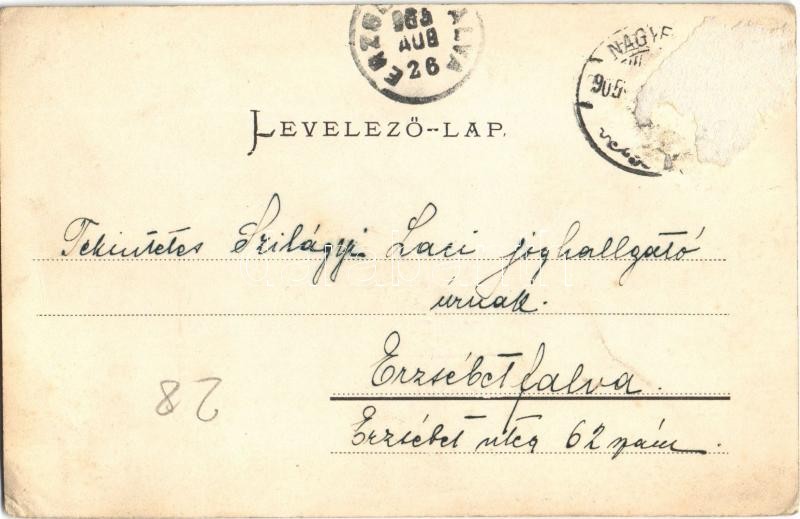 905
AUG
26
NAGY
905
LEVELEZŐ-LAP.
Tekintetes Szilágyi Laci joghallgató
úrnak.
Erzsébetfalva.
Erzsébet utca 62 szám.
28